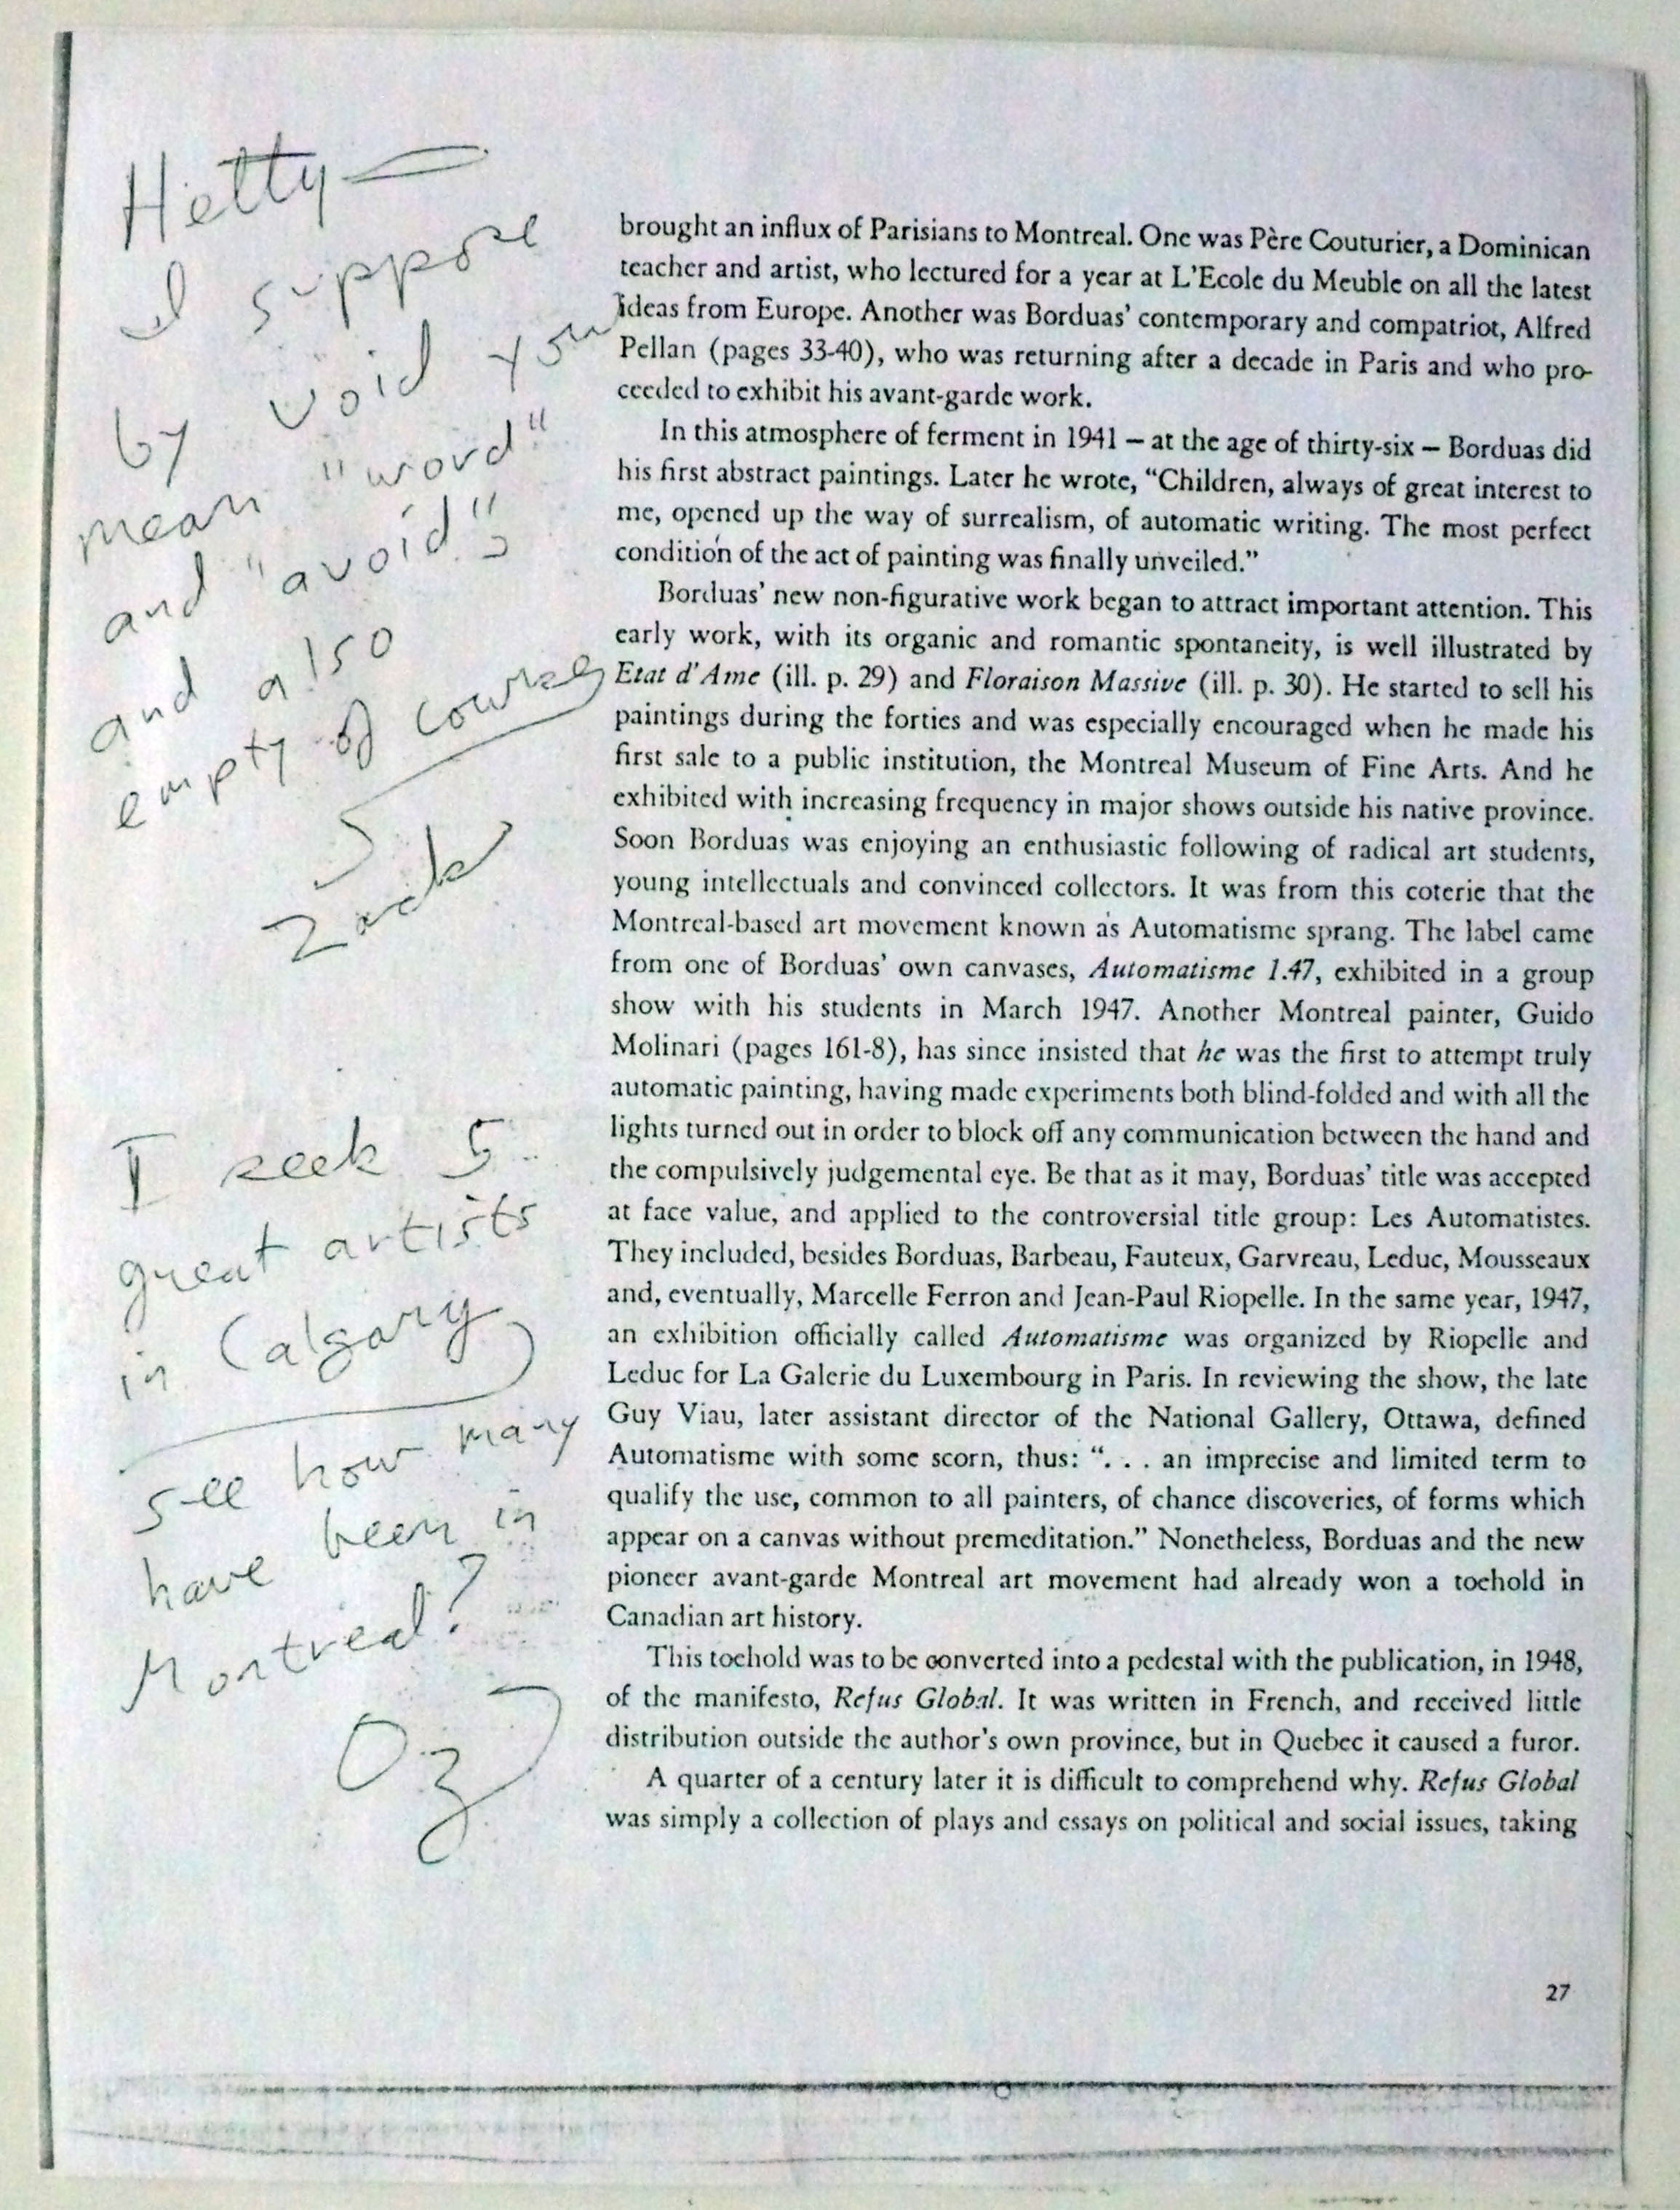 Hetty—
I suppose
by void you
mean "word"
and "avoid",
and also
empty of course,
Zack
I seek 5
great artists
in Calgary
see how many
have been in
Montreal?
Oz
brought an influx of Parisians to Montreal. One was Père Couturier, a Dominican
teacher and artist, who lectured for a year at L'Ecole du Meuble on all the latest
ideas from Europe. Another was Borduas' contemporary and compatriot, Alfred
Pellan (pages 33-40), who was returning after a decade in Paris and who pro-
ceeded to exhibit his avant-garde work.
In this atmosphere of ferment in 1941 – at the age of thirty-six – Borduas did
his first abstract paintings. Later he wrote, “Children, always of great interest to
me, opened up the way of surrealism, of automatic writing. The most perfect
condition of the act of painting was finally unveiled.”
Borduas' new non-figurative work began to attract important attention. This
early work, with its organic and romantic spontaneity, is well illustrated by
Etat d'Ame (ill. p. 29) and Floraison Massive (ill. p. 30). He started to sell his
paintings during the forties and was especially encouraged when he made his
first sale to a public institution, the Montreal Museum of Fine Arts. And he
exhibited with increasing frequency in major shows outside his native province.
Soon Borduas was enjoying an enthusiastic following of radical art students,
young intellectuals and convinced collectors. It was from this coterie that the
Montreal-based art movement known as Automatisme sprang. The label came
from one of Borduas' own canvases, Automatisme 1.47, exhibited in a group
show with his students in March 1947. Another Montreal painter, Guido
Molinari (pages 161-8), has since insisted that he was the first to attempt truly
automatic painting, having made experiments both blind-folded and with all the
lights turned out in order to block off any communication between the hand and
the compulsively judgemental eye. Be that as it may, Borduas' title was accepted
at face value, and applied to the controversial title group: Les Automatistes.
They included, besides Borduas, Barbeau, Fauteux, Garvreau, Leduc, Mousseaux
and, eventually, Marcelle Ferron and Jean-Paul Riopelle. In the same year, 1947,
an exhibition officially called Automatisme was organized by Riopelle and
Leduc for La Galerie du Luxembourg in Paris. In reviewing the show, the late
Guy Viau, later assistant director of the National Gallery, Ottawa, defined
Automatisme with some scorn, thus: “. . . an imprecise and limited term to
qualify the use, common to all painters, of chance discoveries, of forms which
appear on a canvas without premeditation.” Nonetheless, Borduas and the new
pioneer avant-garde Montreal art movement had already won a toehold in
Canadian art history.
This toehold was to be converted into a pedestal with the publication, in 1948,
of the manifesto, Refus Global. It was written in French, and received little
distribution outside the author's own province, but in Quebec it caused a furor.
A quarter of a century later it is difficult to comprehend why. Refus Global
was simply a collection of plays and essays on political and social issues, taking
27